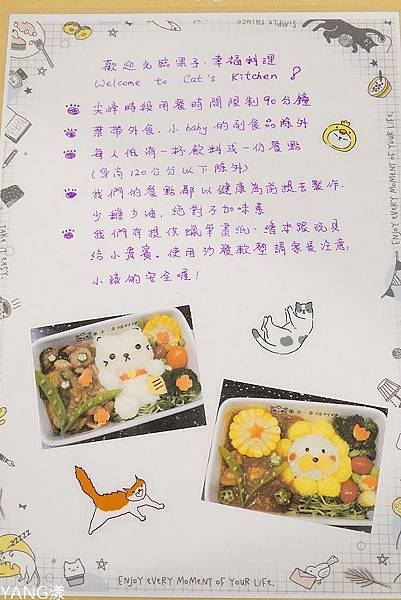 歡迎光臨果子.幸福料理
Welcome to Cat's Kitchen
尖峰時段用餐時間限制90分鐘
禁帶外食,小baby的副食品除外
每人低消一杯飲料或一份餐點
(身高120公分以下除外)
我們的餐點都以健康為前提去製作.
少鹽少油,絕對不加味素
我們有提供蠟筆畫紙、繪本跟玩具
給小貴賓。使用沙發軟墊請家長注意
小孩的安全喔!
ENJOY EVERY MOMENT OF YOUR LIFE.
ENJOY EVERY MOMENT OF YOUR LIFE.
YANG漾